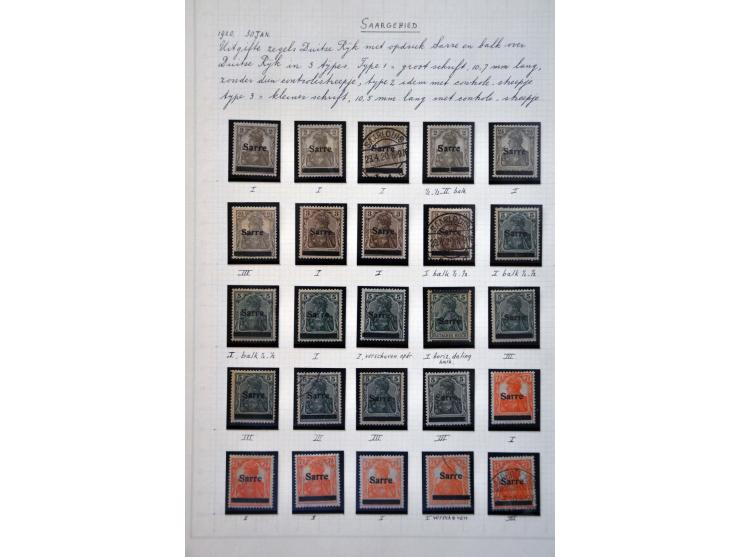 SAARGEBIED
1920. 30 JAN.
Uitgifte zegels Duitse Rijk met opdruk Sarre en balk over
Duitse Rijk in 3 types. Type 1 = groot schrift, 10,7 mm lang,
zonder dun controlestreepje, type 2 idem met controle-streepje
type 3 = kleiner schrift, 10,5 mm lang met controle-streepje
2 2 2 2 2½
Sarre Sarre Sarre Sarre Sarre
SAARLOUIS
I I I ½.½ III balk I
2½ 3 3 3 5
Sarre Sarre Sarre Sarre Sarre
III I I I balk ½.½ I balk ½.½
5 5 5 5 5
Sarre Sarre Sarre Sarre Sarre
I balk ½.½ I I, verschoven opdr. I horiz. daling III
balk
5 5 5 5 7½
Sarre Sarre Sarre Sarre Sarre
III III III III I
Sarre Sarre Sarre Sarre Sarre
I I I I verschoven III